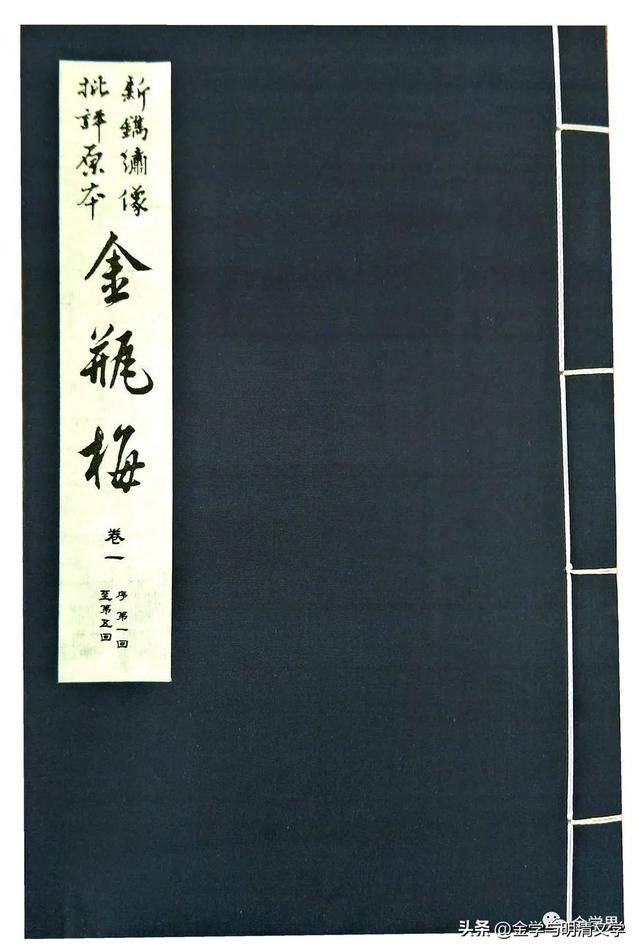 新鐫繡像
批評原本
金瓶梅
卷一
序 第一回
至第五回
头条 @金学与明清文学